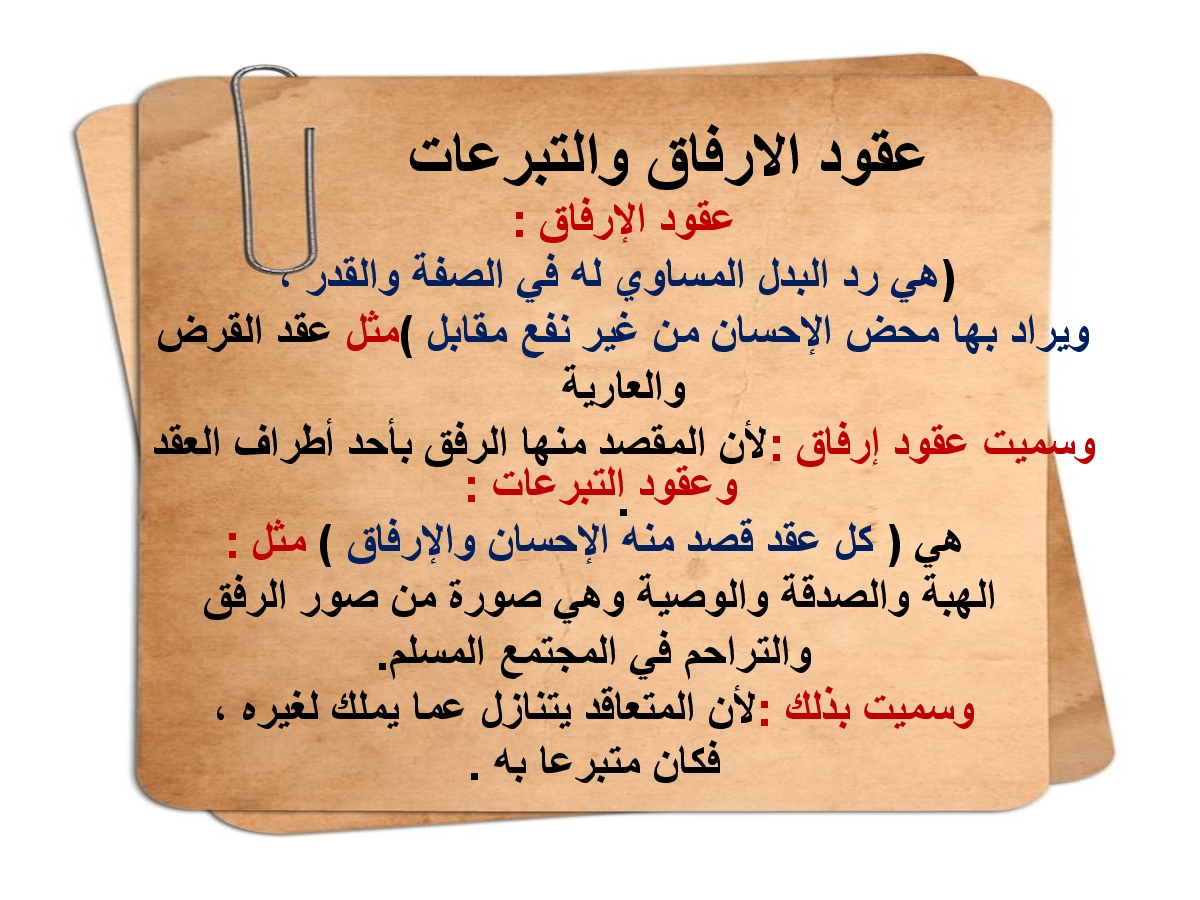 عقود الارفاق والتبرعات
عقود الإرفاق :
(هي رد البدل المساوي له في الصفة والقدر ،
ويراد بها محض الإحسان من غير نفع مقابل )مثل عقد القرض
والعارية
وسميت عقود إرفاق :لأن المقصد منها الرفق بأحد أطراف العقد
.
وعقود التبرعات :
هي ( كل عقد قصد منه الإحسان والإرفاق ) مثل :
الهبة والصدقة والوصية وهي صورة من صور الرفق
والتراحم في المجتمع المسلم.
وسميت بذلك :لأن المتعاقد يتنازل عما يملك لغيره ،
فكان متبرعا به .